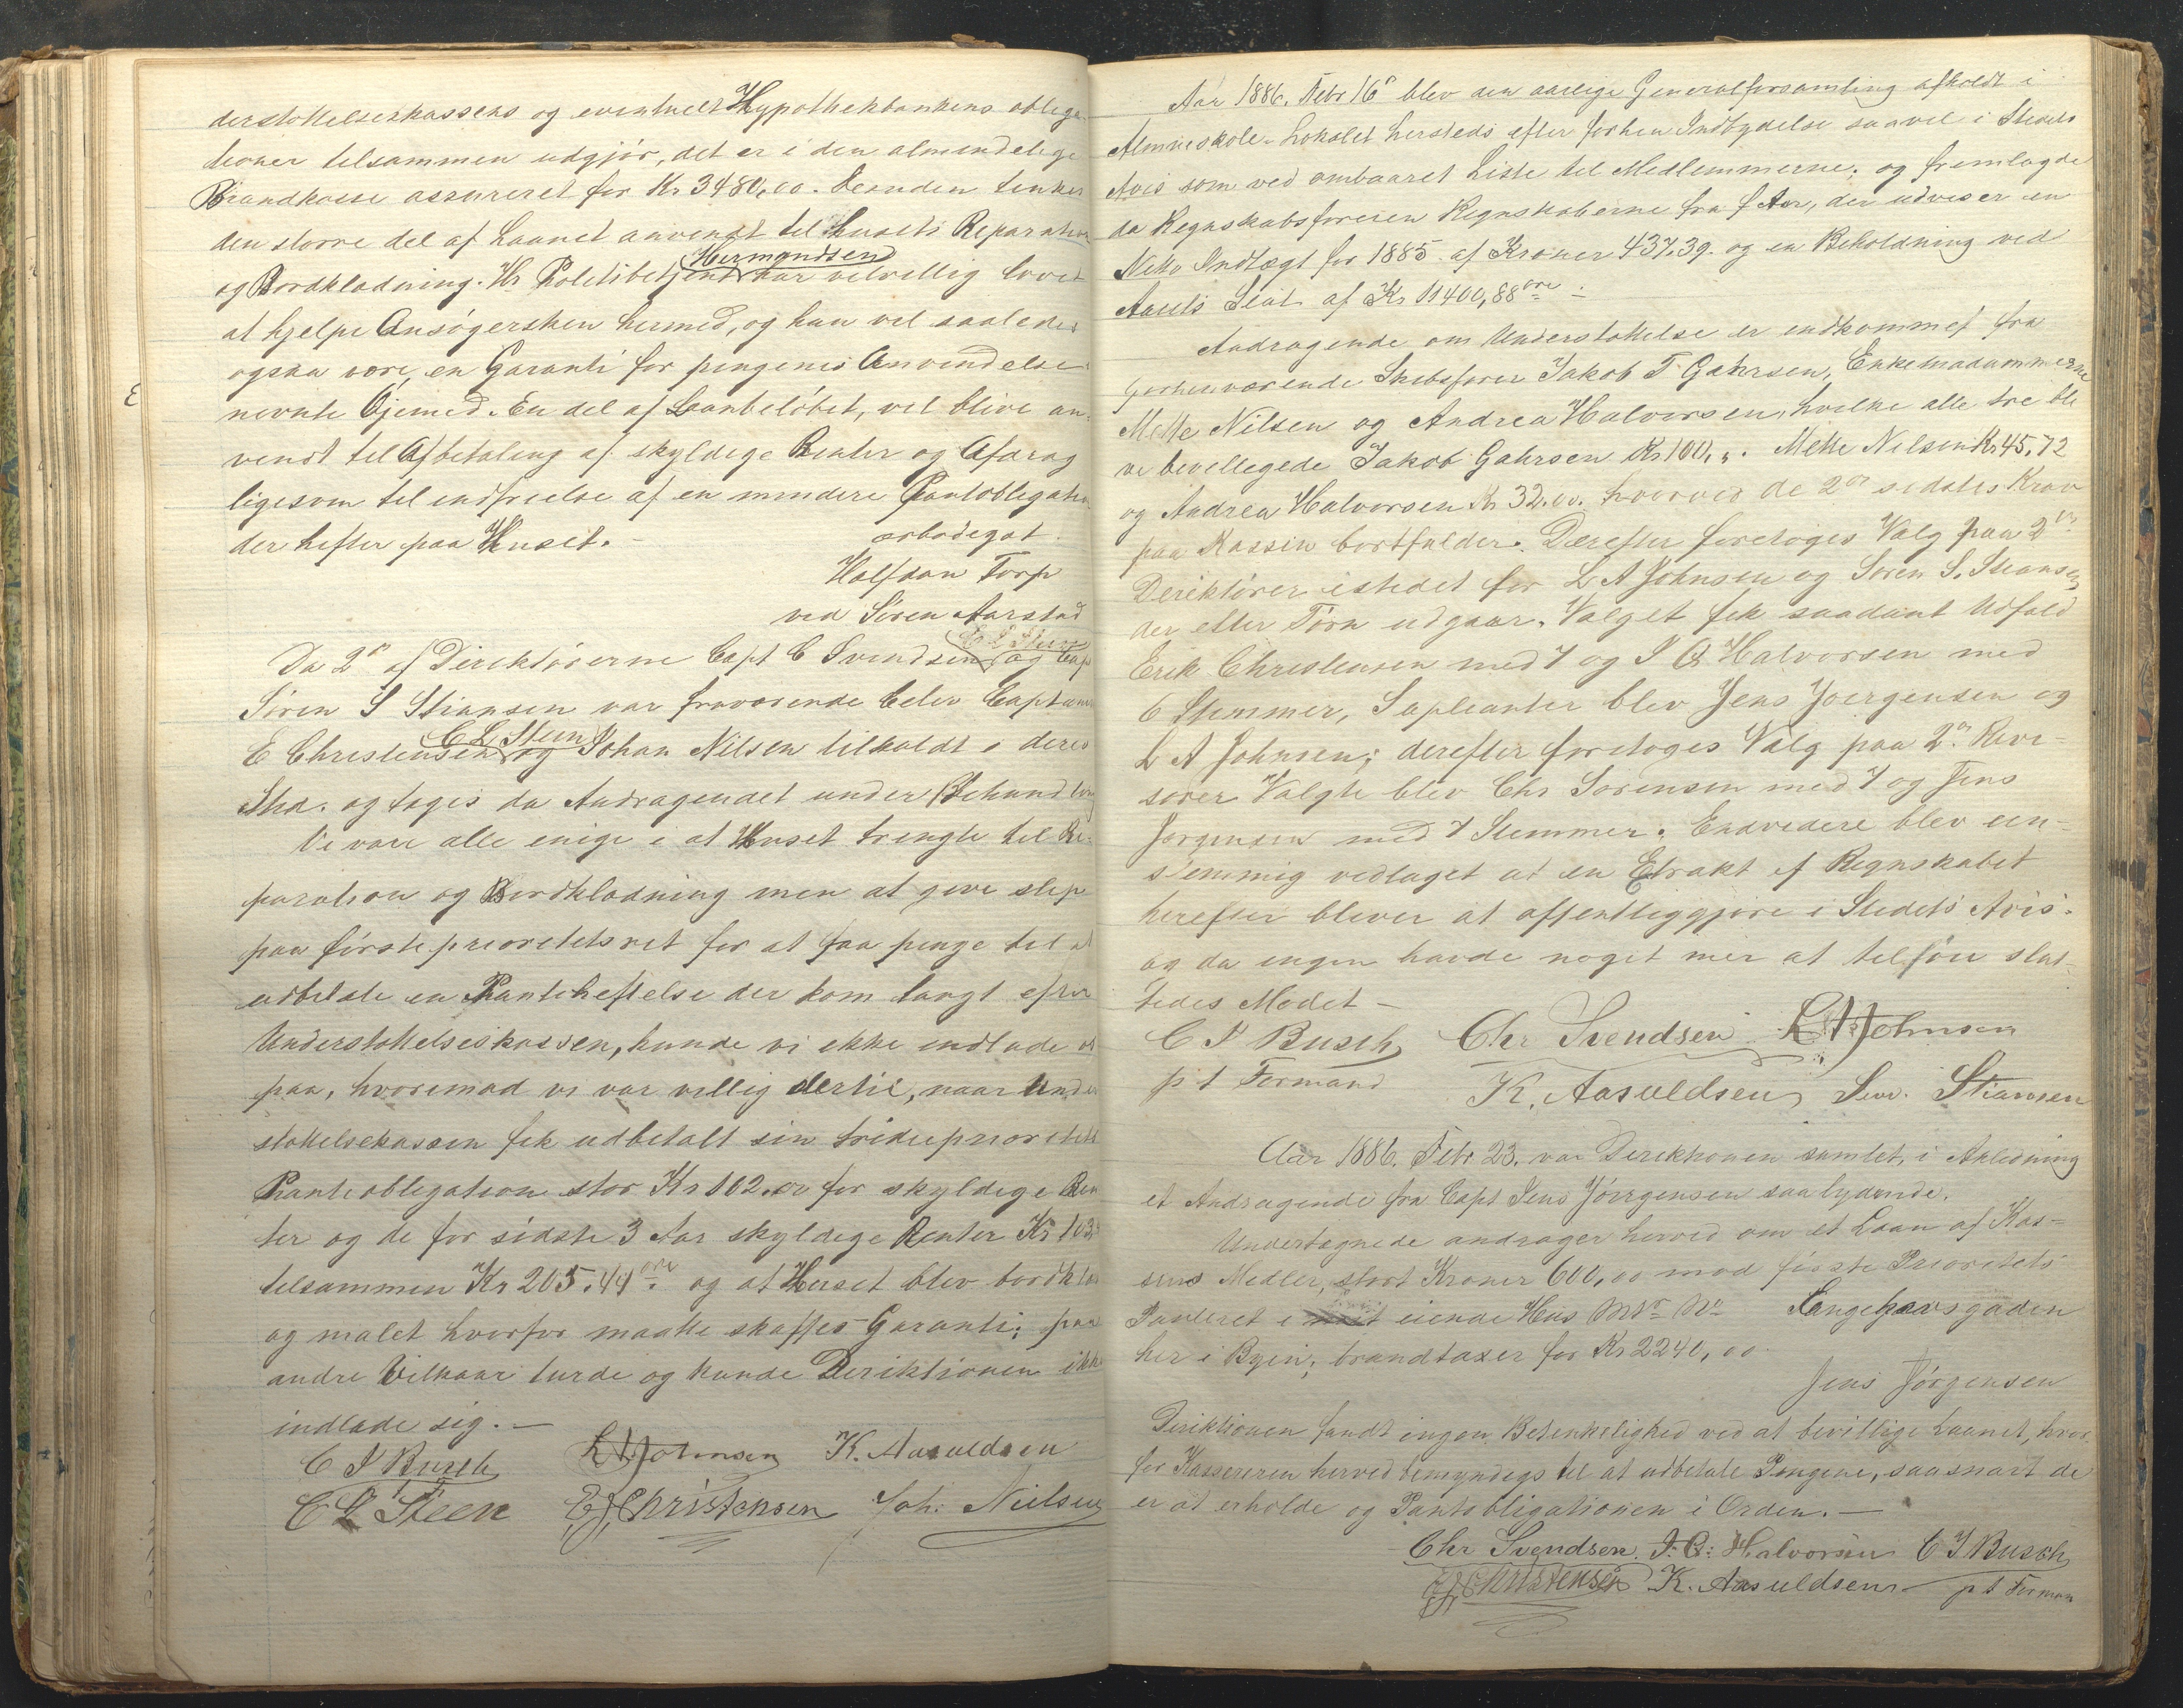 derstøttelseskassens og eventuelt Hypothekbankens obliga-
tioner tilsammen udgjør, det er i den almindelige
Brandkasse assureret for Kr 3480,00. Desuden tenkes
den større del af Laanet anvendt til husets Reparation
Hermandsen
og Bordklædning. Hr Politibetjent har velvillig lovet
at hjelpe Ansøgersken hermed, og han vil saaledes
ogsaa være en Garanti for pengenes Anvendelse
nevnte Øjemed. En del af Laanbeløbet, vil blive an-
vendt til Afbetaling af skyldige Renter og Afdrag
ligesom til indfrielse af en mindre Pantobligation
der hefter paa Huset. -
ærbødigst
Halfdan Torp
ved Søren Aarstad
C L Steen
Da 2de af Direktørerne Capt C Svendsen og Cap
Søren S Stiansen var fraværende blev Captain
C L Steen
E Christensen og Johan Nilsen tilkaldt i deres
Sted. og toges da Andragendet under Behandling
Vi vare alle enige i at Huset trengte til Re-
paration og Bordklædning men at give slip
paa første prioritetsret for at faa penge til at
udbetale en Panteheftelse der kom langt efter
Understøttelseskassen, kunde vi ikke indlade os
paa, hvorimod vi var villig dertil, naar Under
støttelseskassen fik udbetalt sin tridieprioritets
Panteobligation stor Kr 102.00 for skyldige Ren
ter og de for sidste 3 Aar skyldige Renter Kr 103
tilsammen Kr 205.44 øre og at Huset blev bordklæ
og malet hvorfor maatte skaffes Garanti; paa
andre Vilkaar turde og kunde Direktionen ikke
indlade sig. -
C I Busch L A Johnsen K. Aasuldsen
C L Steen E J Christensen Joh: Nielsen
Aar 1886. Febr 16de blev den aarlige Generalforsamling afholdt i
Almueskole-Lokalet hersteds efter forhen Indbydelse saavel i Stedets
Avis som ved ombaaret Liste til Medlemmerne; og fremlagde
da Regnskabsføreren Regnskaberne fra f Aar, der udviser en
Netto Indtægt for 1885 af Kroner 437.39. og en Beholdning ved
Aarets Slut af Kr 11400,88 øre -
Andragende om Understøttelse er indkommet fra
forhenværende Skibsfører Jakob T Gahrsen, Enkemadammerne
Mette Nilsen og Andrea Halvorsen, hvilke alle tre ble
ve bevillegede Jakob Gahrsen Kr 100,,. Mette Nilsen Kr 45,72
og Andrea Halvorsen Kr 32.00. hvorved de 2de sidstes Krav
paa Kassen bortfalder. Derefter foretoges Valg paa 2de
Direktører istedet for L A Johnsen og Søren S. Stiansen
der efter Törn udgaar. Valget fik saadant Udfald
Erik Christensen med 7 og I C Halvorsen med
6 Stemmer, Supleanter blev Jens Joergensen og
L A Johnsen; derefter foretoges Valg paa 2de Revi-
sorer Valgte blev Chr Sørensen med 7 og Jens
Jørgensen med 7 Stemmer. Endvidere blev een-
stemmig vedtaget at en Etrakt af Regnskabet
herefter bliver at offentliggjøre i Stedets Avis.
og da ingen havde noget mer at tilføie slut-
tedes Mødet -
C I Busch Chr Svendsen L A Johnsen
p t Formand K. Aasuldsen Sør. Stiansen
Aar 1886. Febr 23. var Direktionen samlet, i Anledning
et Andragende fra Capt Jens Jörgensen saalydende.
Undertegnede andrager herved om et Laan af Kas-
sens Medler, stort Kroner 600,00 mod første Prioritets
Panteret i mit eiende Hus Mtr No Langehavsgaden
her i Byen, brandtaxer for Kr 2240,00.
Jens Jörgensen
Direktionen fandt ingen Betenkelighed ved at bevillige Laanet, hvor
for Kassereren herved bemyndiges til at udbetale Pengene, saasnart de
er at erholde og Pantobligationen i Orden. -
Chr Svendsen. I. C. Halvorsen C I Busch
E J Christensen K. Aasuldsen p t Forman